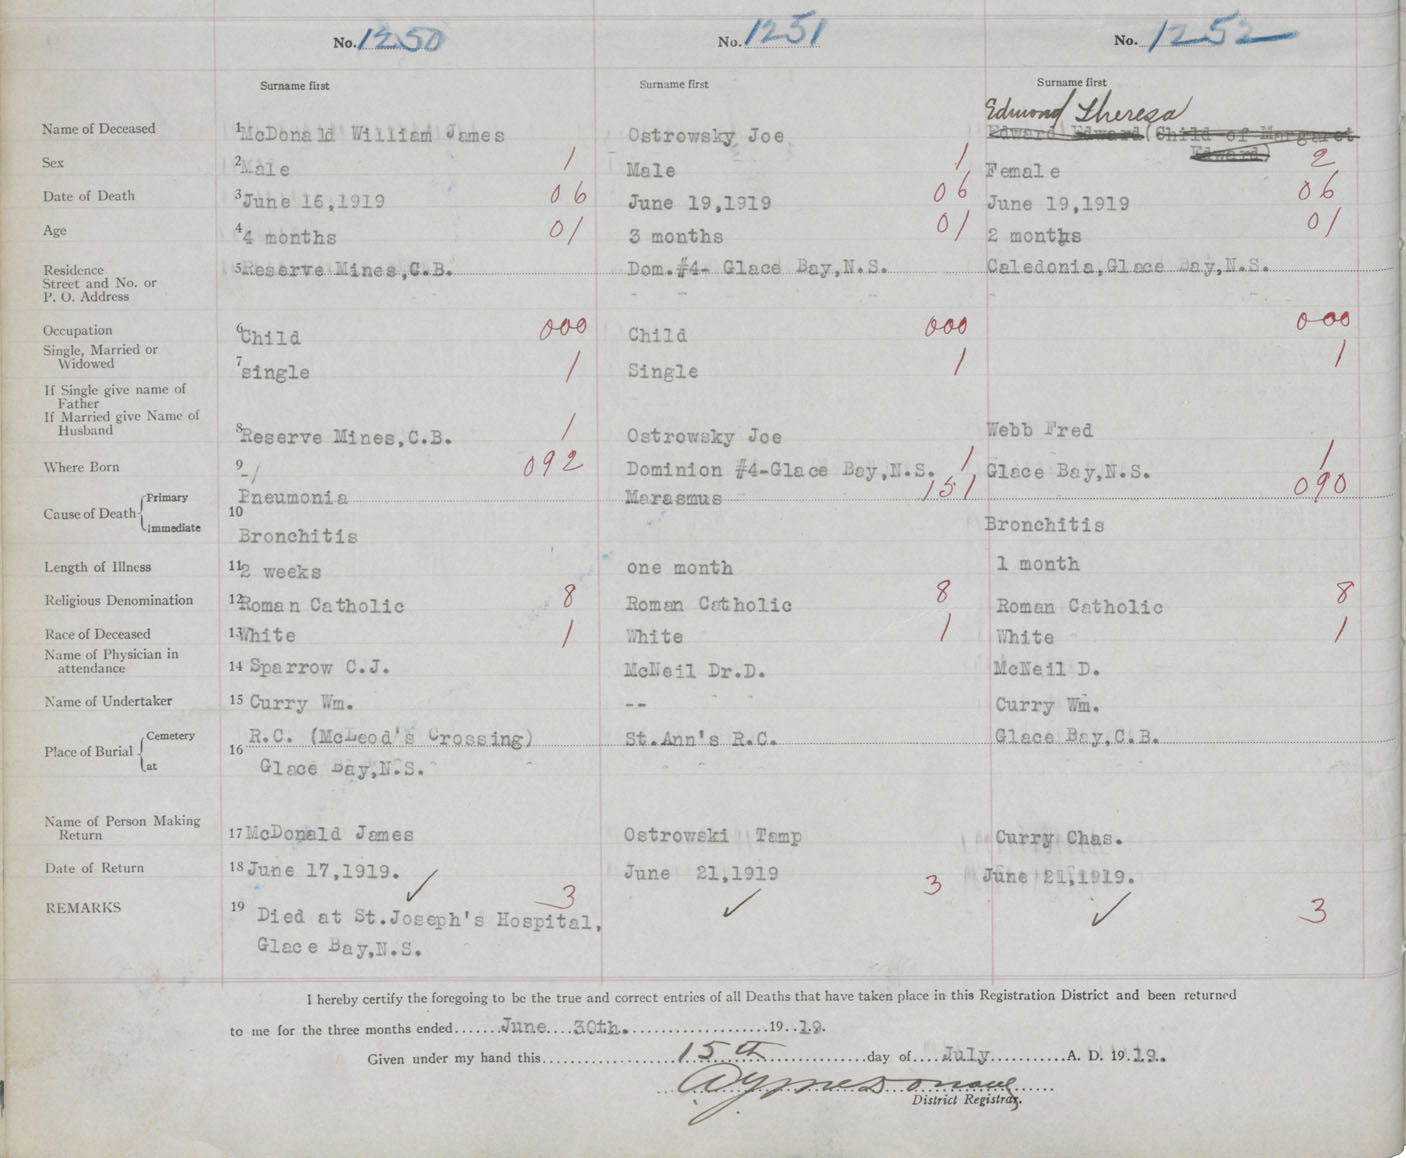 No. 1250 No. 1251 No. 1252
Surname first Surname first Surname first
Edmond Theresa
Name of Deceased 1 McDonald William James Ostrowsky Joe Edward Edward (Child of Margaret
Edward)
Sex 2 Male 1 Male 1 Female 2
Date of Death 3 June 16,1919 06 June 19,1919 06 June 19,1919 06
Age 4 4 months 01 3 months 01 2 months 01
Residence 5 Reserve Mines,C.B. Dom.#4- Glace Bay,N.S. Caledonia,Glace Bay,N.S.
Street and No. or
P. O. Address
Occupation 6 Child 000 Child 000 000
Single, Married or
Widowed 7 single 1 Single 1 1
If Single give name of
Father
If Married give Name of
Husband 8 Reserve Mines,C.B. 1 Ostrowsky Joe Webb Fred
Where Born 9 -/ 092 Dominion #4-Glace Bay,N.S. 1 Glace Bay,N.S. 1
Cause of Death Primary Pneumonia Marasmus 151 090
10
Immediate Bronchitis Bronchitis
Length of Illness 11 2 weeks one month 1 month
Religious Denomination 12 Roman Catholic 8 Roman Catholic 8 Roman Catholic 8
Race of Deceased 13 White 1 White 1 White 1
Name of Physician in
attendance 14 Sparrow C.J. McNeil Dr.D. McNeil D.
Name of Undertaker 15 Curry Wm. -- Curry Wm.
Place of Burial Cemetery 16 R.C. (McLeod's Crossing) St.Ann's R.C. Glace Bay,C.B.
at Glace Bay,N.S.
Name of Person Making
Return 17 McDonald James Ostrowski Tamp Curry Chas.
Date of Return 18 June 17,1919. June 21,1919 June 21,1919.
3 3 3
REMARKS 19 Died at St.Joseph's Hospital,
Glace Bay,N.S.
I hereby certify the foregoing to be the true and correct entries of all Deaths that have taken place in this Registration District and been returned
to me for the three months ended.......June....30th.....................19..19.
Given under my hand this....................15th...............day of....July...........A. D. 19.19..
District Registrar.